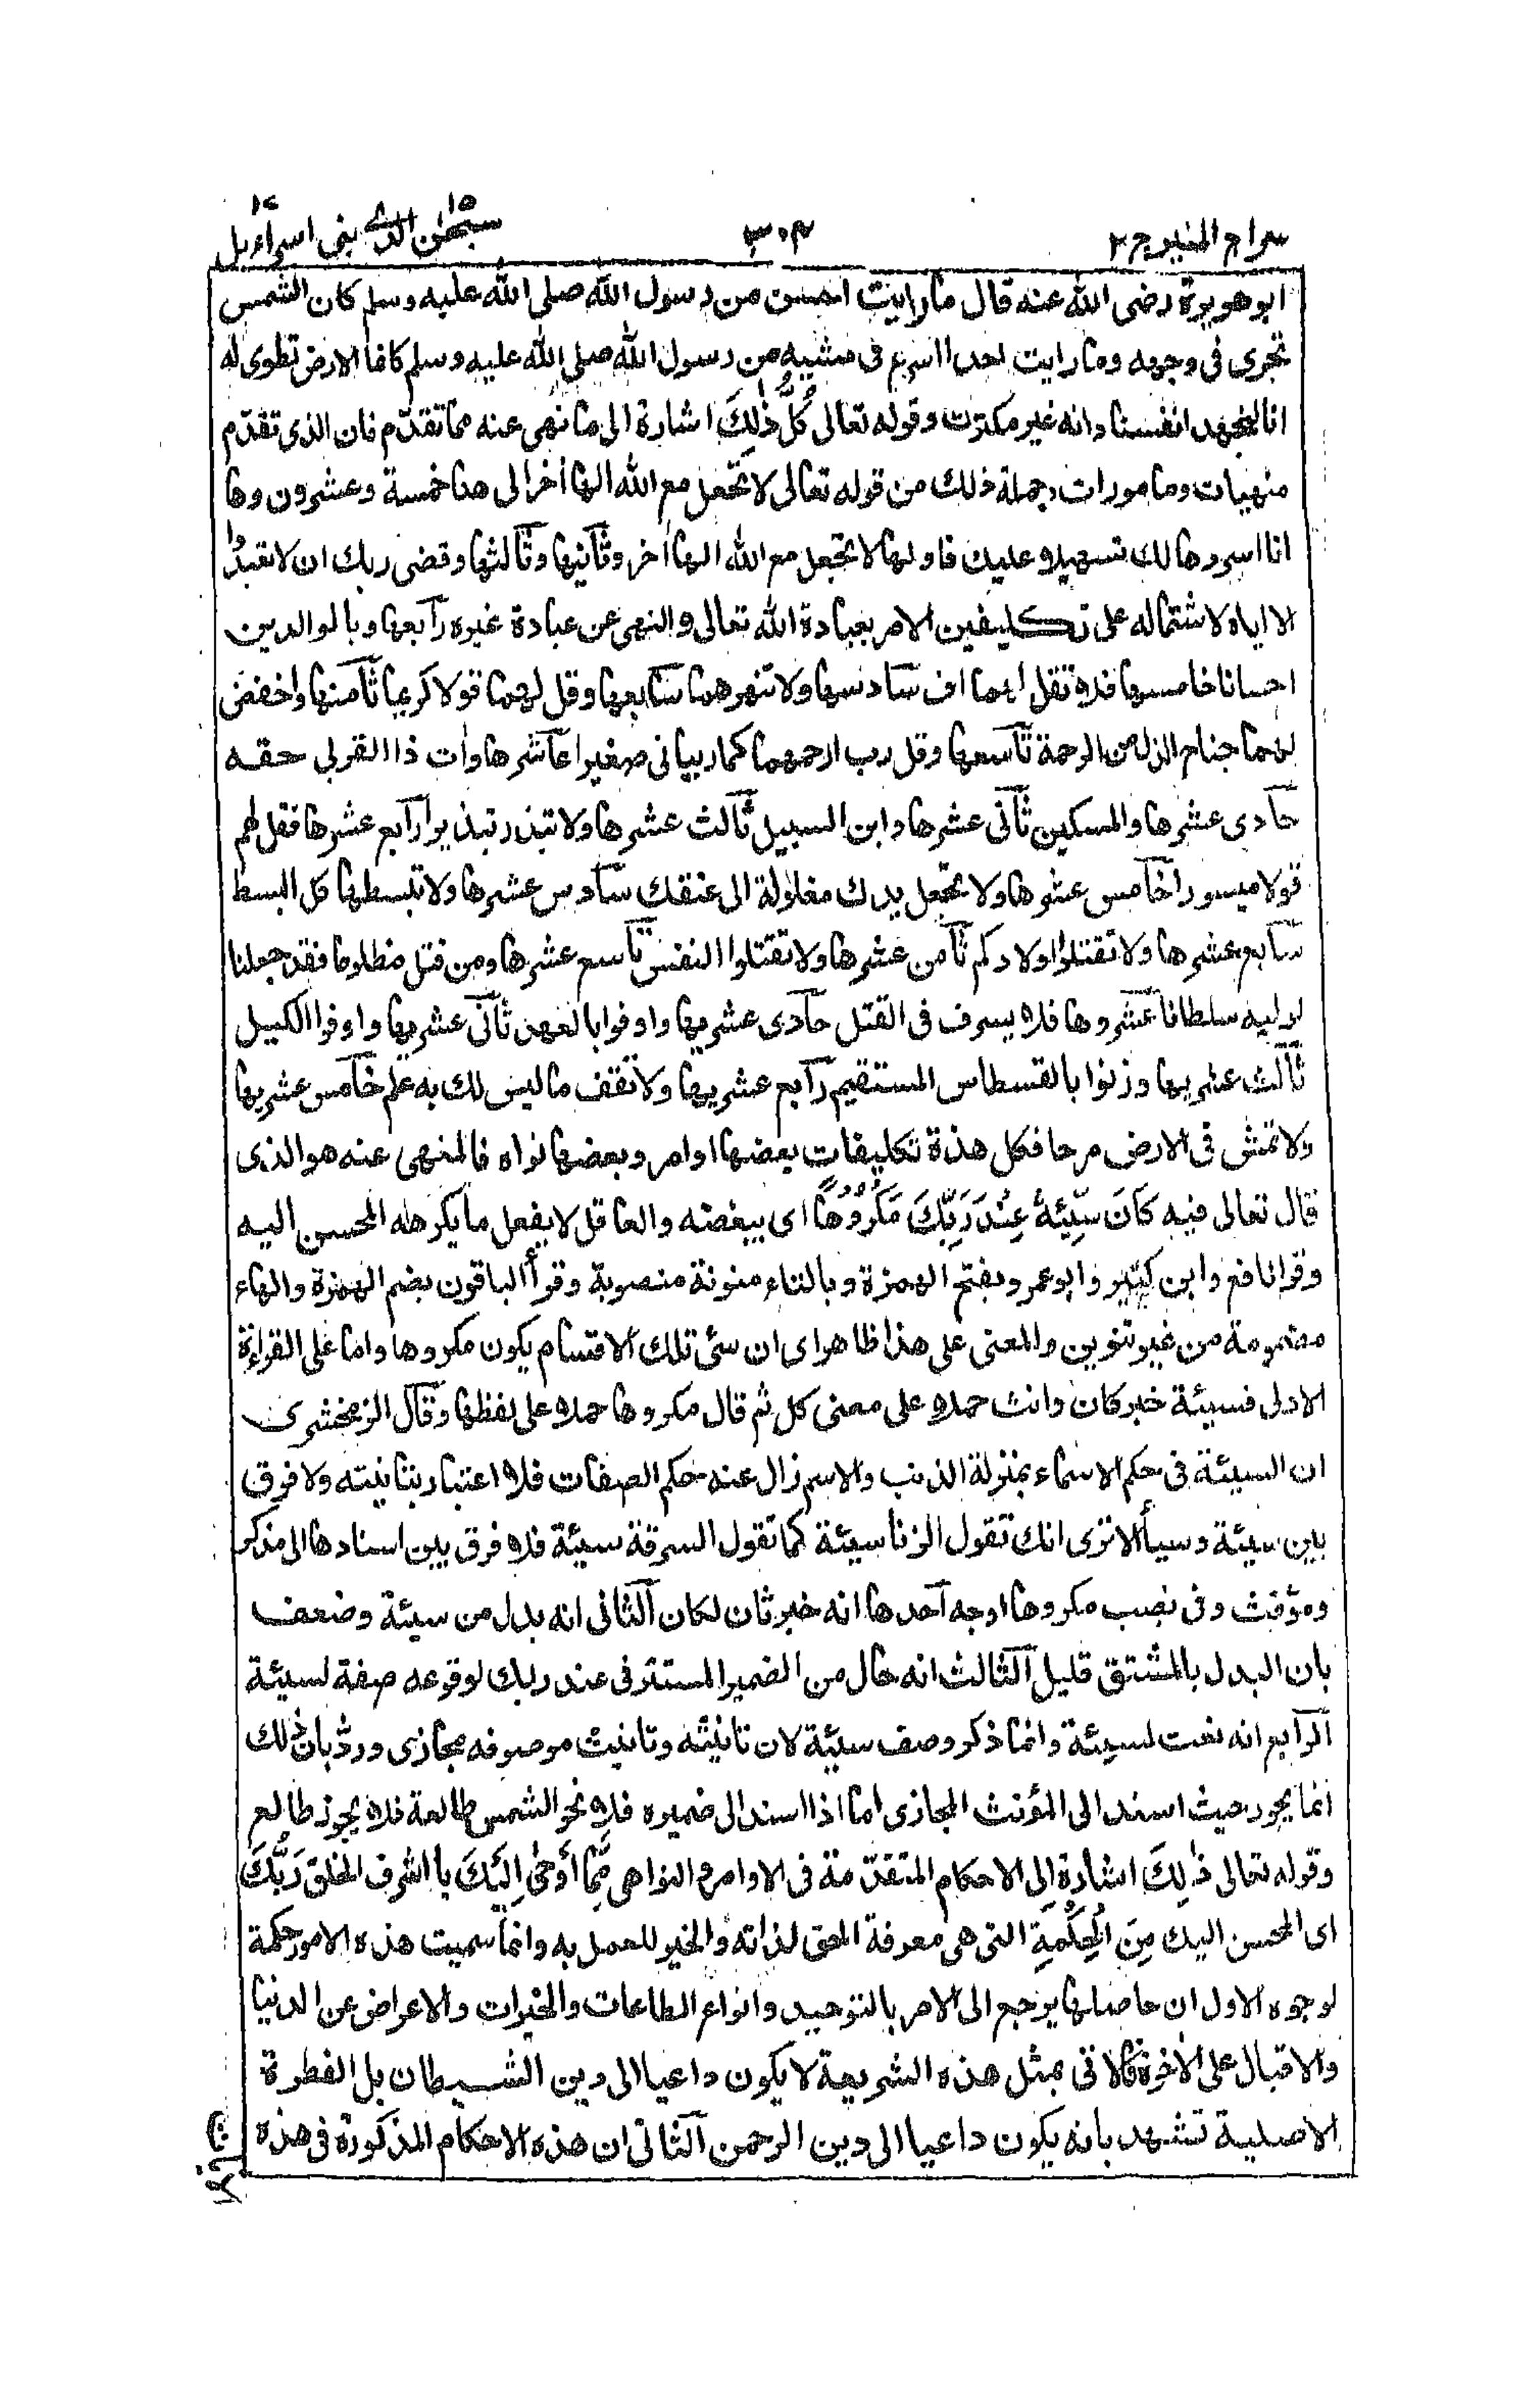 سراج المنير ج ٢
٣٠٤
سبحٰن الذی ١٥ بنی اسراءیل ١٧
ابو هريرة رضى الله عنه قال ما رايت احسن من رسول الله صلى الله عليه وسلم كان الشمس
تجرى فى وجهه وما رايت احدا اسرع فى مشيه من رسول الله صلى الله عليه وسلم كانما الارض تطوى له
انا لنجهد انفسنا وانه غير مكترث وقوله تعالى كُلُّ ذٰلِكَ اشارة الى ما نهى عنه مما تقدّم فان الذى تقدّم
منهيات ومامورات وجملة ذلك من قوله تعالى لا تجعل مع الله الها اٰخر الى هنا خمسة وعشرون وها
انا اسردها لك تسهيلا عليك فاولها لا تجعل مع الله الها اٰخر وثانيها وثالثها وقضى ربك ان لا تعبدوا
الا اياه لاشتماله على تكليفين الامر بعبادة الله تعالى والنهى عن عبادة غيره رابعها وبالوالدين
احسانا خامسها فلا تقل لهما اف سادسها ولا تنهرهما سابعها وقل لهما قولا كريما ثامنها واخفض
لهما جناح الذل من الرحمة تاسعها وقل رب ارحمهما كما ربيانى صغيرا عاشرها واٰت ذا القربى حقه
حادى عشرها والمسكين ثانى عشرها وابن السبيل ثالث عشرها ولا تبذر تبذيرا رابع عشرها فقل لهم
قولا ميسورا خامس عشرها ولا تجعل يدك مغلولة الى عنقك سادس عشرها ولا تبسطها كل البسط
سابع عشرها ولا تقتلوا اولادكم ثامن عشرها ولا تقتلوا النفس تاسع عشرها ومن قتل مظلوما فقد جعلنا
لوليه سلطانا عشروها فلا يسرف فى القتل حادى عشريها واوفوا بالعهد ثانى عشريها واوفوا الكيل
ثالث عشريها وزنوا بالقسطاس المستقيم رابع عشريها ولا تقف ما ليس لك به علم خامس عشريها
ولا تمش فى الارض مرحا فكل هذه تكليفات بعضها اوامر وبعضها نواه فالمنهى عنه هو الذى
قال تعالى فيه كَانَ سَيِّئَةً عِنْدَ رَبِّكَ مَكْرُوْهًا اى يبغضه والعاقل لا يفعل ما يكرهه المحسن اليه
وقرا نافع وابن كثير وابو عمرو بفتح الهمزة وبالتاء منونة منصوبة وقرأ الباقون بضم الهمزة والهاء
مضمومة من غير تنوين والمعنى على هذا ظاهر اى ان سئ تلك الاقسام يكون مكروها واما على القراءة
الاولى فسيئة خبر كان وانث حملا على معنى كل ثم قال مكروها حملا على لفظها وقال الزمخشرى
ان السيئة فى حكم الاسماء بمنزلة الذنب والاسم زال عنه حكم الصفات فلا اعتبار بتانيثه ولا فرق
بين سيئة وسيأ الا ترى انك تقول الزنا سيئة كما تقول السرقة سيئة فلا فرق بين اسنادها الى مذكر
ومؤنث وفى نصب مكروها اوجه احدها انه خبر ثان لكان الثانى انه بدل من سيئة وضعف
بان البدل بالمشتق قليل الثالث انه حال من الضمير المستتر فى عند ربك لوقوعه صفة لسيئة
الرابع انه نعت لسيئة وانما ذكر وصف سيئة لان تانيثه وتانيث موصوفه مجازى وردّ بان ذلك
انما يجوز حيث اسند الى المؤنث المجازى اما اذا اسند الى ضميره فلا نحو الشمس طالعة فلا يجوز طالع
وقوله تعالى ذٰلِكَ اشارة الى الاحكام المتقدّمة فى الاوامر والنواهى مِمَّا أَوْحٰى اِلَيْكَ يا اشرف الخلق رَبُّكَ
اى المحسن اليك مِنَ الْحِكْمَةِ التى هى معرفة الحق لذاته والخير للعمل به وانما سميت هذه الامور حكمة
لوجوه الاول ان حاصلها يرجع الى الامر بالتوحيد وانواع الطاعات والخيرات والاعراض عن الدنيا
والاقبال على الاٰخرة فالاٰتى بمثل هذه الشريعة لا يكون داعيا الى دين الشيطان بل الفطرة
الاصلية تشهد بانه يكون داعيا الى دين الرحمن الثانى ان هذه الاحكام المذكورة فى هذه